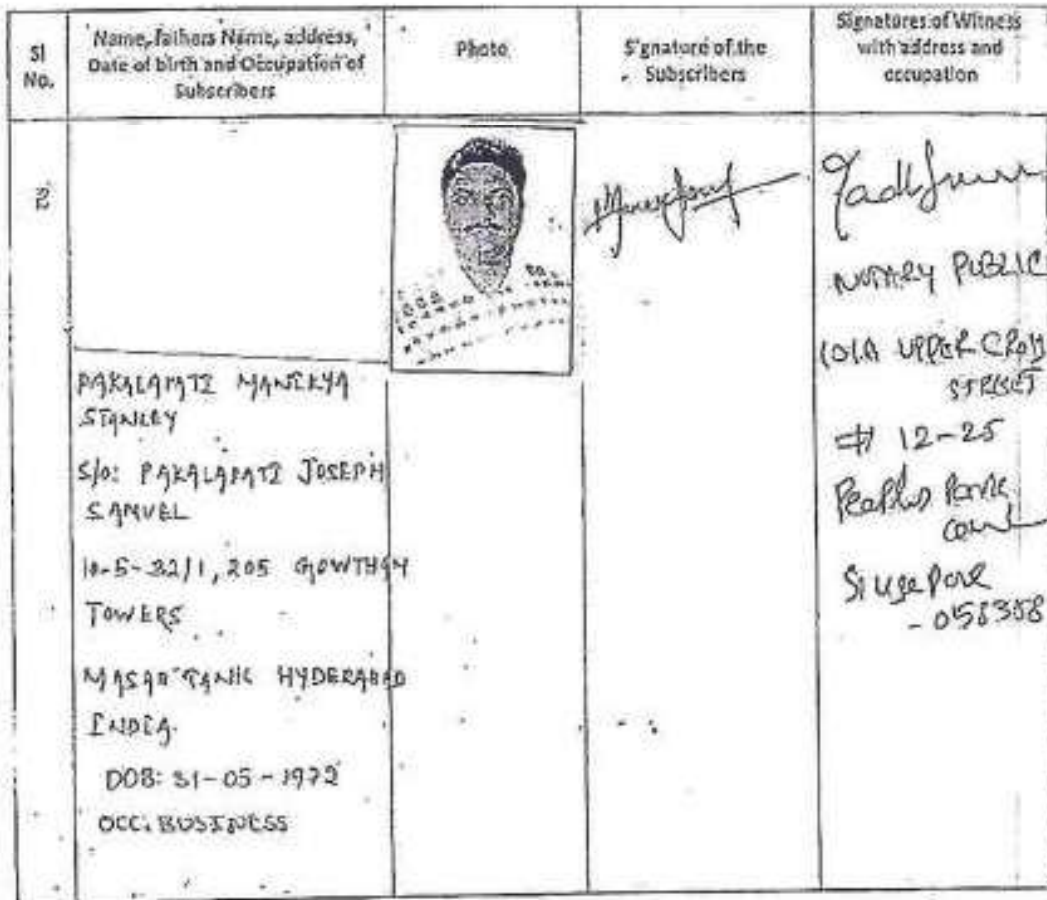 Sl No.
Name, fathers Name, address, Date of birth and Occupation of Subscribers
Photo
Signature of the Subscribers
Signatures of Witness with address and occupation
PAKALAPATI MANIKYA
STANLEY
S/O: PAKALAPATI JOSEPH
SAMUEL
10-5-32/1, 205 GOWTHAM
TOWERS
MASAB TANK HYDERABAD
INDIA.
DOB: 31-05-1972
OCC: BUSINESS
NOTARY PUBLIC
UPPER CROSS
STREET
# 12-25
Peoples Park
Singapore
- 058358